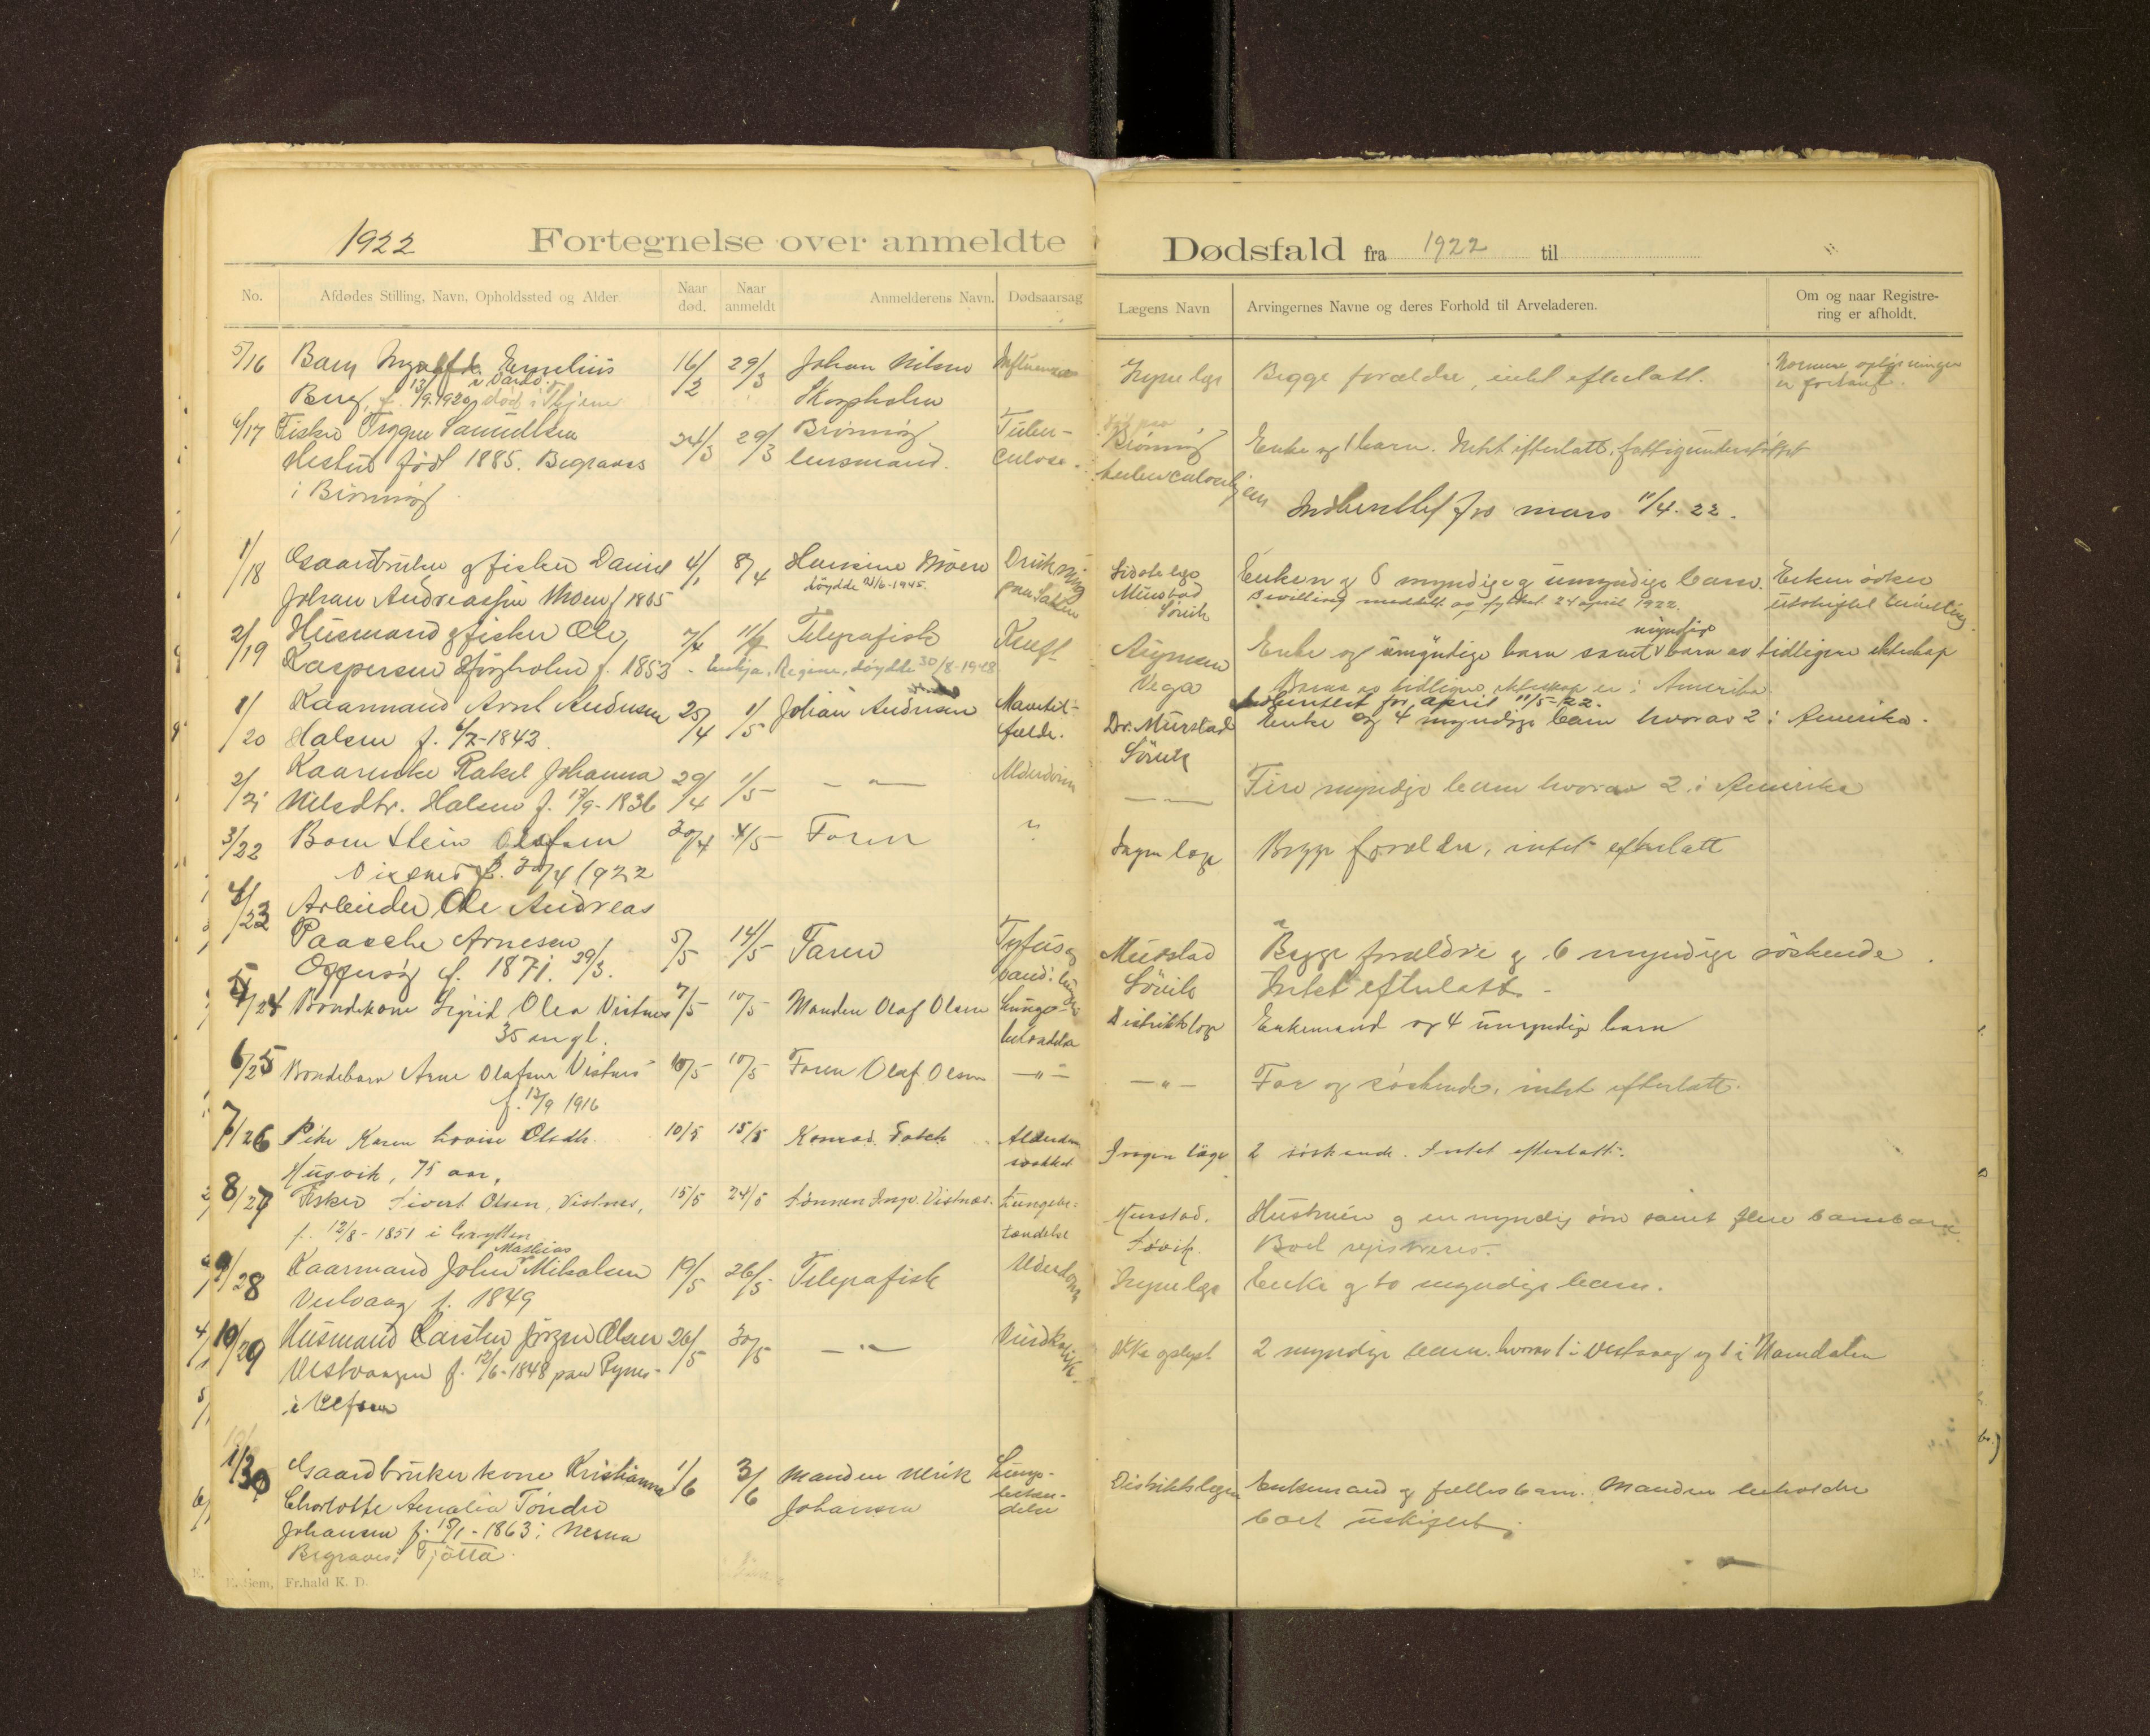 1922 Fortegnelse over anmeldte Dødsfald fra 1922 til
No. Afdødes Stilling, Navn, Opholdssted og Alder Naar død. Naar anmeldt Anmelderens Navn. Dødsaarsag Lægens Navn Arvingernes Navne og deres Forhold til Arveladeren. Om og naar Registrering er afholdt.
5/16 Barn Emelius 16/2 29/3 Johan Nilsen Influensa Ingen lege Begge forældre, intet efterlatt.
Berg, f. 13/9.1920, død i Skogsholm
6/17 Fisker Trygve Samuelsen 24/3 29/3 Brønnøy Tuber- Brønnøy Enke og 1 barn. Intet efterlatt, fattigunderstøttet
født 1885. Begraves lensmand. culose.
i Brønnøy
Indberettet for mars 11/4. 22.
1/18 Gaardbruker og fisker Daniel 4/1 8/4 Drukning Enken og 6 myndige og umyndige barn. Enken ønsker
Johan Andreassen Moen f 1865 døydde 21/6-1945. paa Murstad Bevilling meddelt av fylket 24 april 1922.
Søvik
2/19 Husmand og fisker Ole 7/4 11/4 Telegrafisk Enke og umyndige barn samt myndige barn av tidligere ekteskap
Kaspersen f. 1853 - Enkja, Regine, døydde 30/8-1948 Vega Barna av tidligere ekteskap er i Amerika.
Indberettet for april 11/5-22.
1/20 Kaarmand Arnt Andersen 25/4 1/5 Johan Andersen Mavetil- Dr. Murstad Enke og 4 myndige barn hvorav 2 i Amerika.
Halsen f. 6/7-1843. fælde. Søvik
2/21 Kaarenke Rakel Johanna 29/4 1/5 — " — Alderdom — " — Fire myndige barn hvorav 2 i Amerika
Nilsdtr. Halsen f. 17/9-1836
3/22 Barn Stein Olafsen 30/4 4/5 Faren " Ingen læge Begge forældre, intet efterlatt
Vistnes f. 30/4 1922
4/23 Arbeider Ole Andreas
Paasche Arnesen 5/5 14/5 Faren Tyfus og Murstad Begge forældre og 6 myndige søskende.
f. 1871. 29/3. Søvik Intet efterlatt.
5/24 Bondekone Sigrid Olea Vistnes 7/5 10/5 Manden Olaf Olsen Lunge- Distriktslæge Enkemand og 4 umyndige barn
35 gl. betændelse
6/25 Bondebarn Arne Olafsen Vistnes 10/5 10/5 Faren Olaf Olsen — " — — " — Far og søskende, intet efterlatt.
f. 13/9 1916
7/26 Pike Karen Lovise Olsdtr. 10/5 15/5 Konrad Alderdoms- Ingen læge 2 søskende. Intet efterlatt.
Husvik, 75 aar, svakhet
8/27 Fisker Sivert Olsen, Vistnes, 15/5 24/5 Sønnen Ingv. Vistnes. Lungebe- Murstad, Hustruen og en myndig søn samt flere barnebarn.
f. 12/8-1851 i Grytten tændelse Søvik. Boet registreres.
9/28 Kaarmand Johan Mathias Mikalsen 19/5 26/5 Telegrafisk Alderdom Ingen lege Enke og to myndige barn.
f. 1849
10/29 Husmand Karsten Jørgen Olsen 26/5 30/5 — " — Ikke oplyst 2 myndige barn hvorav 1 i Vestvaag og 1 i Namdalen
Vestvaagen f. 12/6-1848 paa
i Vefsen
1/30 Gaardbruker kone Kristianna 1/6 3/6 Manden Ulrik Lunge- Distriktslægen Enkemand og fælles barn. Manden beholder
Charlotte Amalia Tøndre Johansen betæn- boet uskiftet.
Johansen f. 15/1-1863 i Nesna delse
Begraves i Tjøtta.
Sem, Fr.hald K. D.